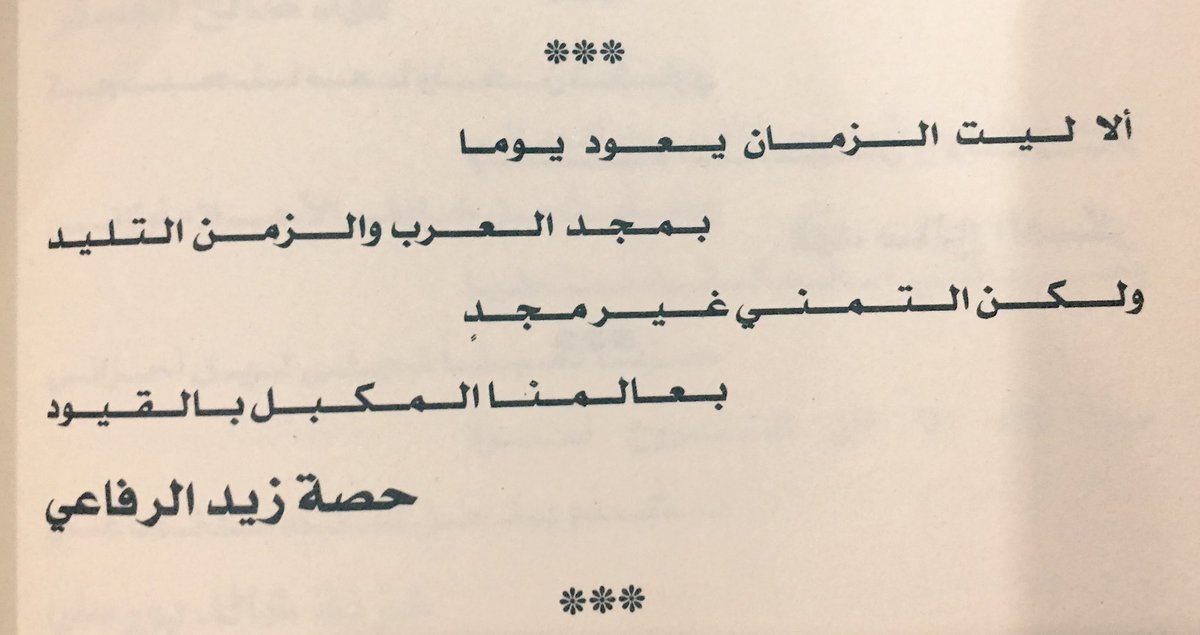 ***
ألا ليت الزمان يعود يوما
بمجد العرب والزمن التليد
ولكن التمني غير مجدٍ
بعالمنا المكبل بالقيود
حصة زيد الرفاعي
***